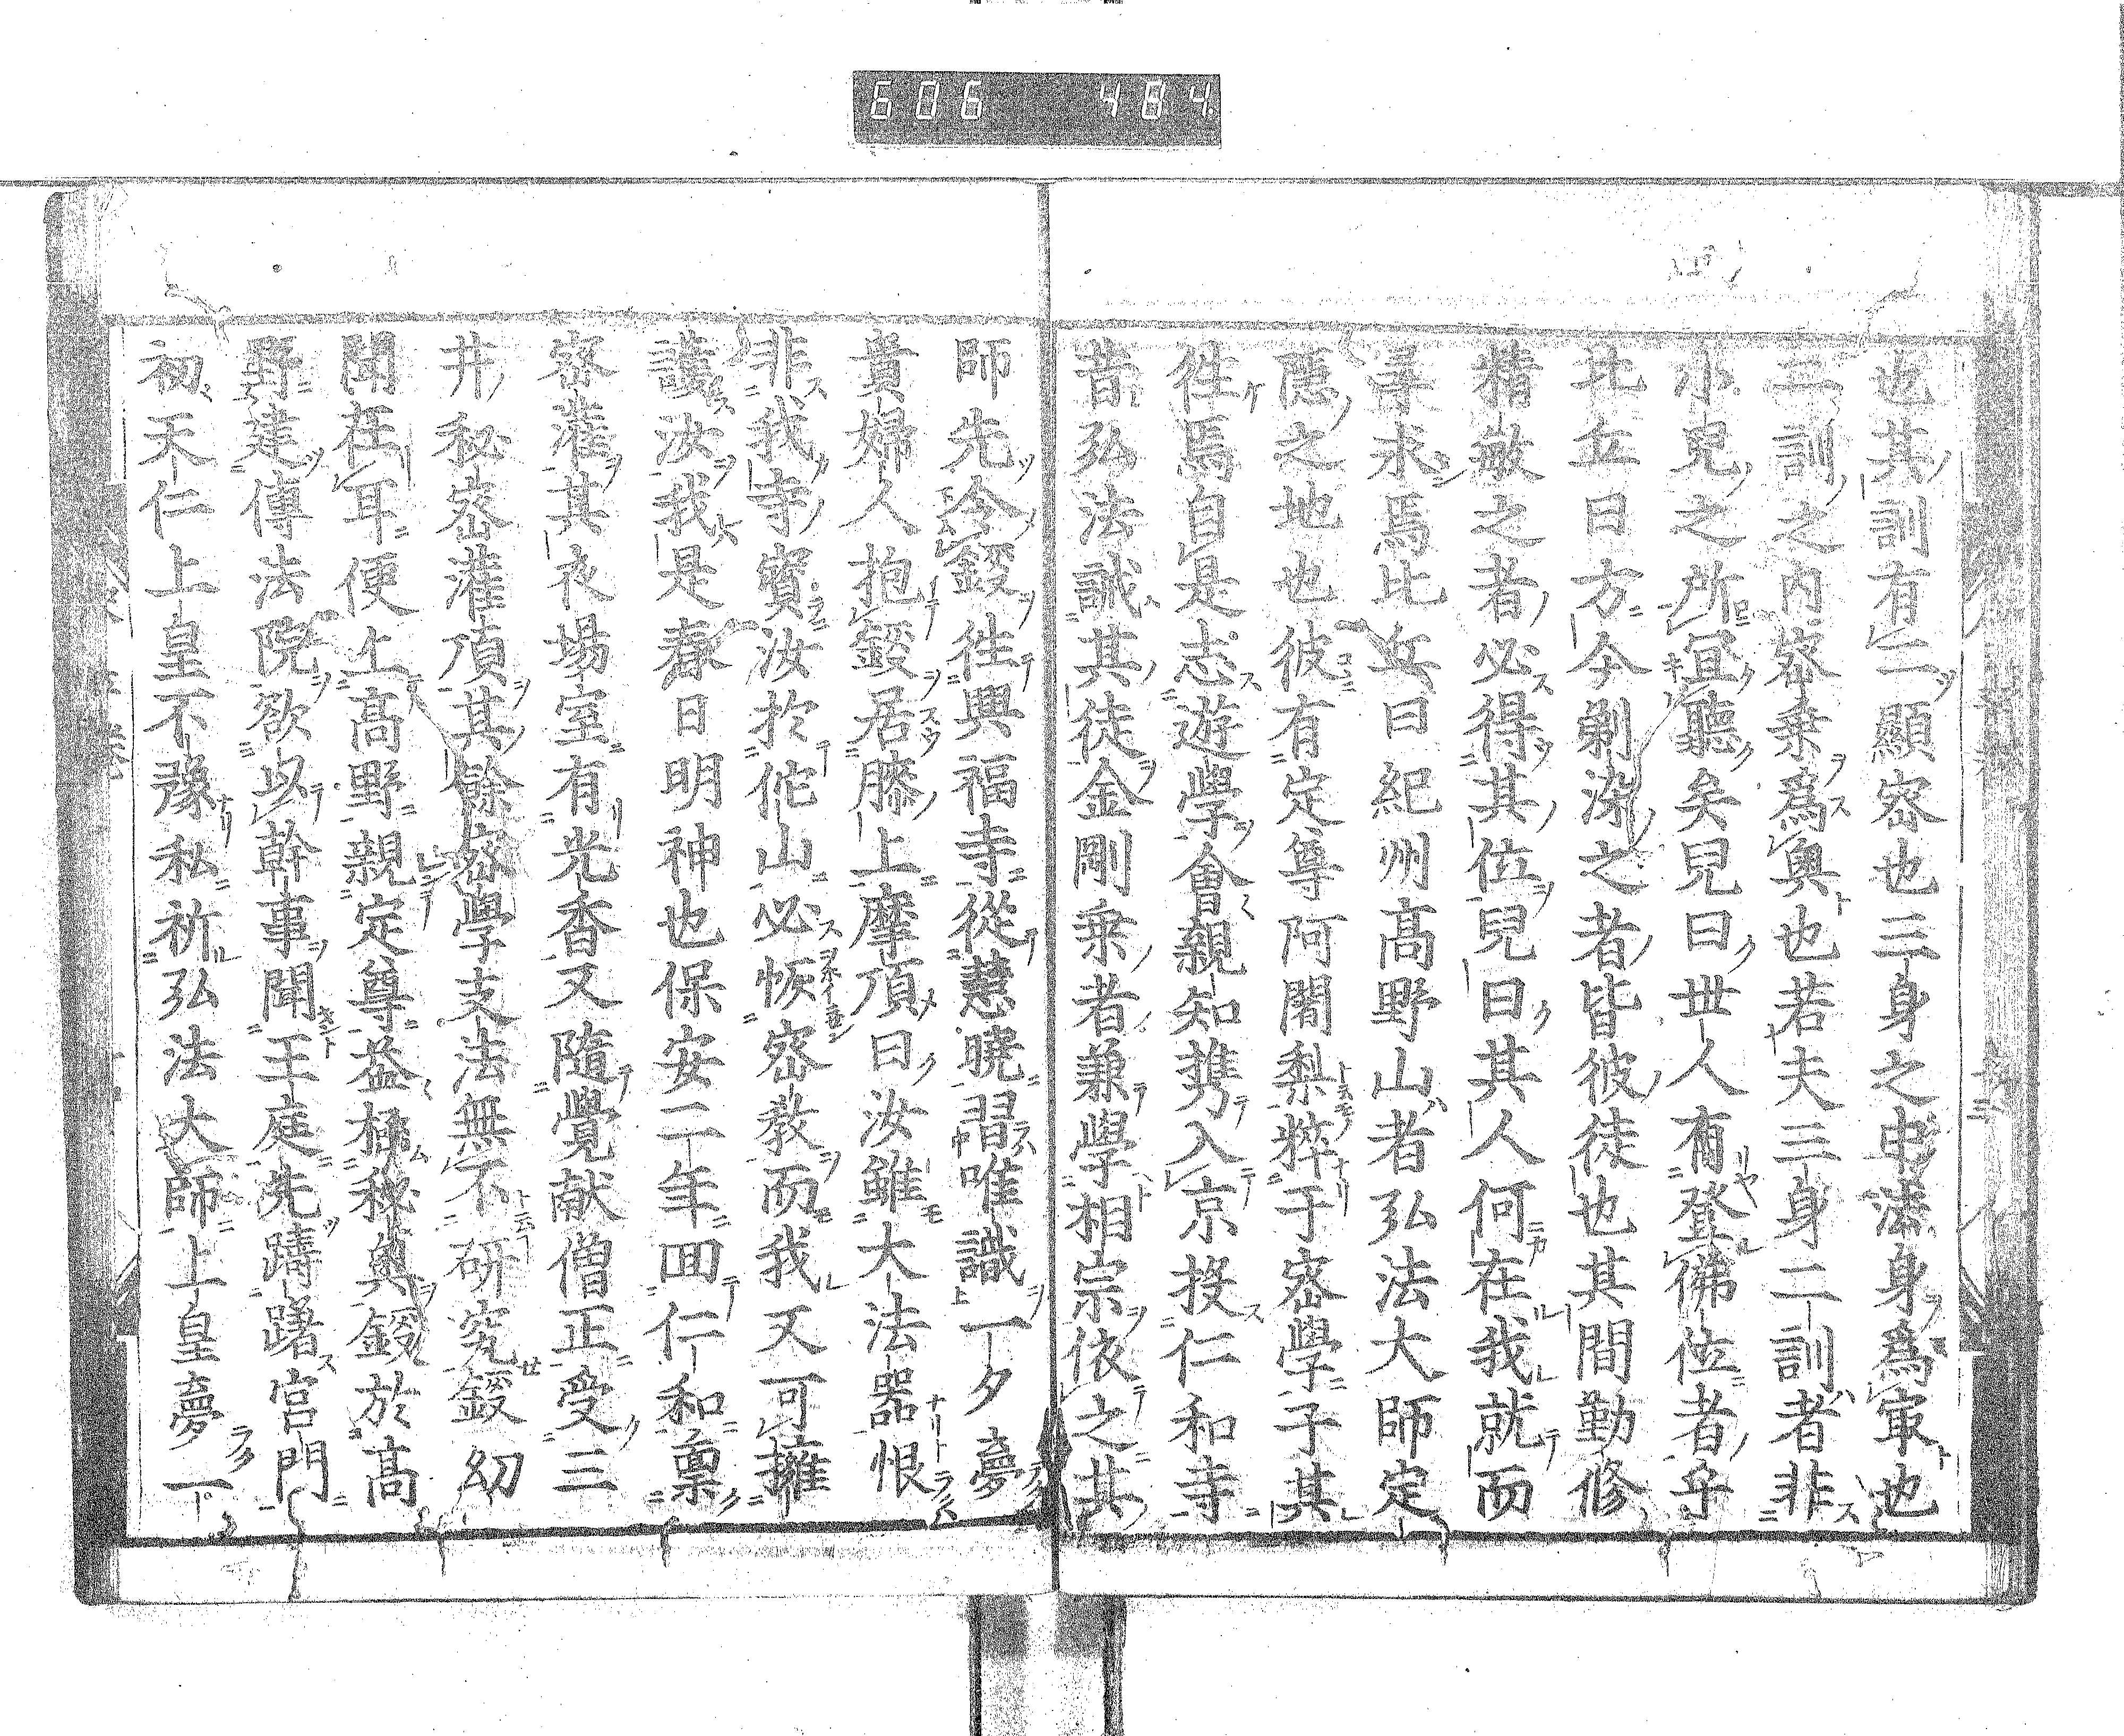 606 484
也其訓有二顯密也三身之中法身爲冣也
二訓之内密乗爲奥也若夫三身二訓者非
小兒之所冝聽矣兒曰世人有登佛位者乎
比丘曰方今剃染之者皆彼徒也其間勤修
精敏之者必得其位兒曰其人何在我就而
尋求焉比丘曰紀州髙野山者弘法大師定
隱之地也彼有定尊阿闍梨粹于密學子其
徃焉自是志遊學會親知携入京投仁和寺
昔弘法誡其徒金剛乗者兼學相宗依之其
師先令鋄徃興福寺從慧曉習唯識一夕夢
貴婦人抱鋄居膝上摩頂曰汝雖大法噐恨
非我寺寳汝於佗山必恢密教而我又可擁
護汝我是春日明神也保安二年囬仁和禀
密灌其衣場室有光香又隨覺猷僧正受三
井秘密灌頂其餘密學支法無不研究鋄紉
聞在耳便上髙野親定尊益極秘奥鋄於髙
野建傳法院欲以幹事聞王庭先躊躇宮門
初天仁上皇不豫私祈弘法大師上皇夢一